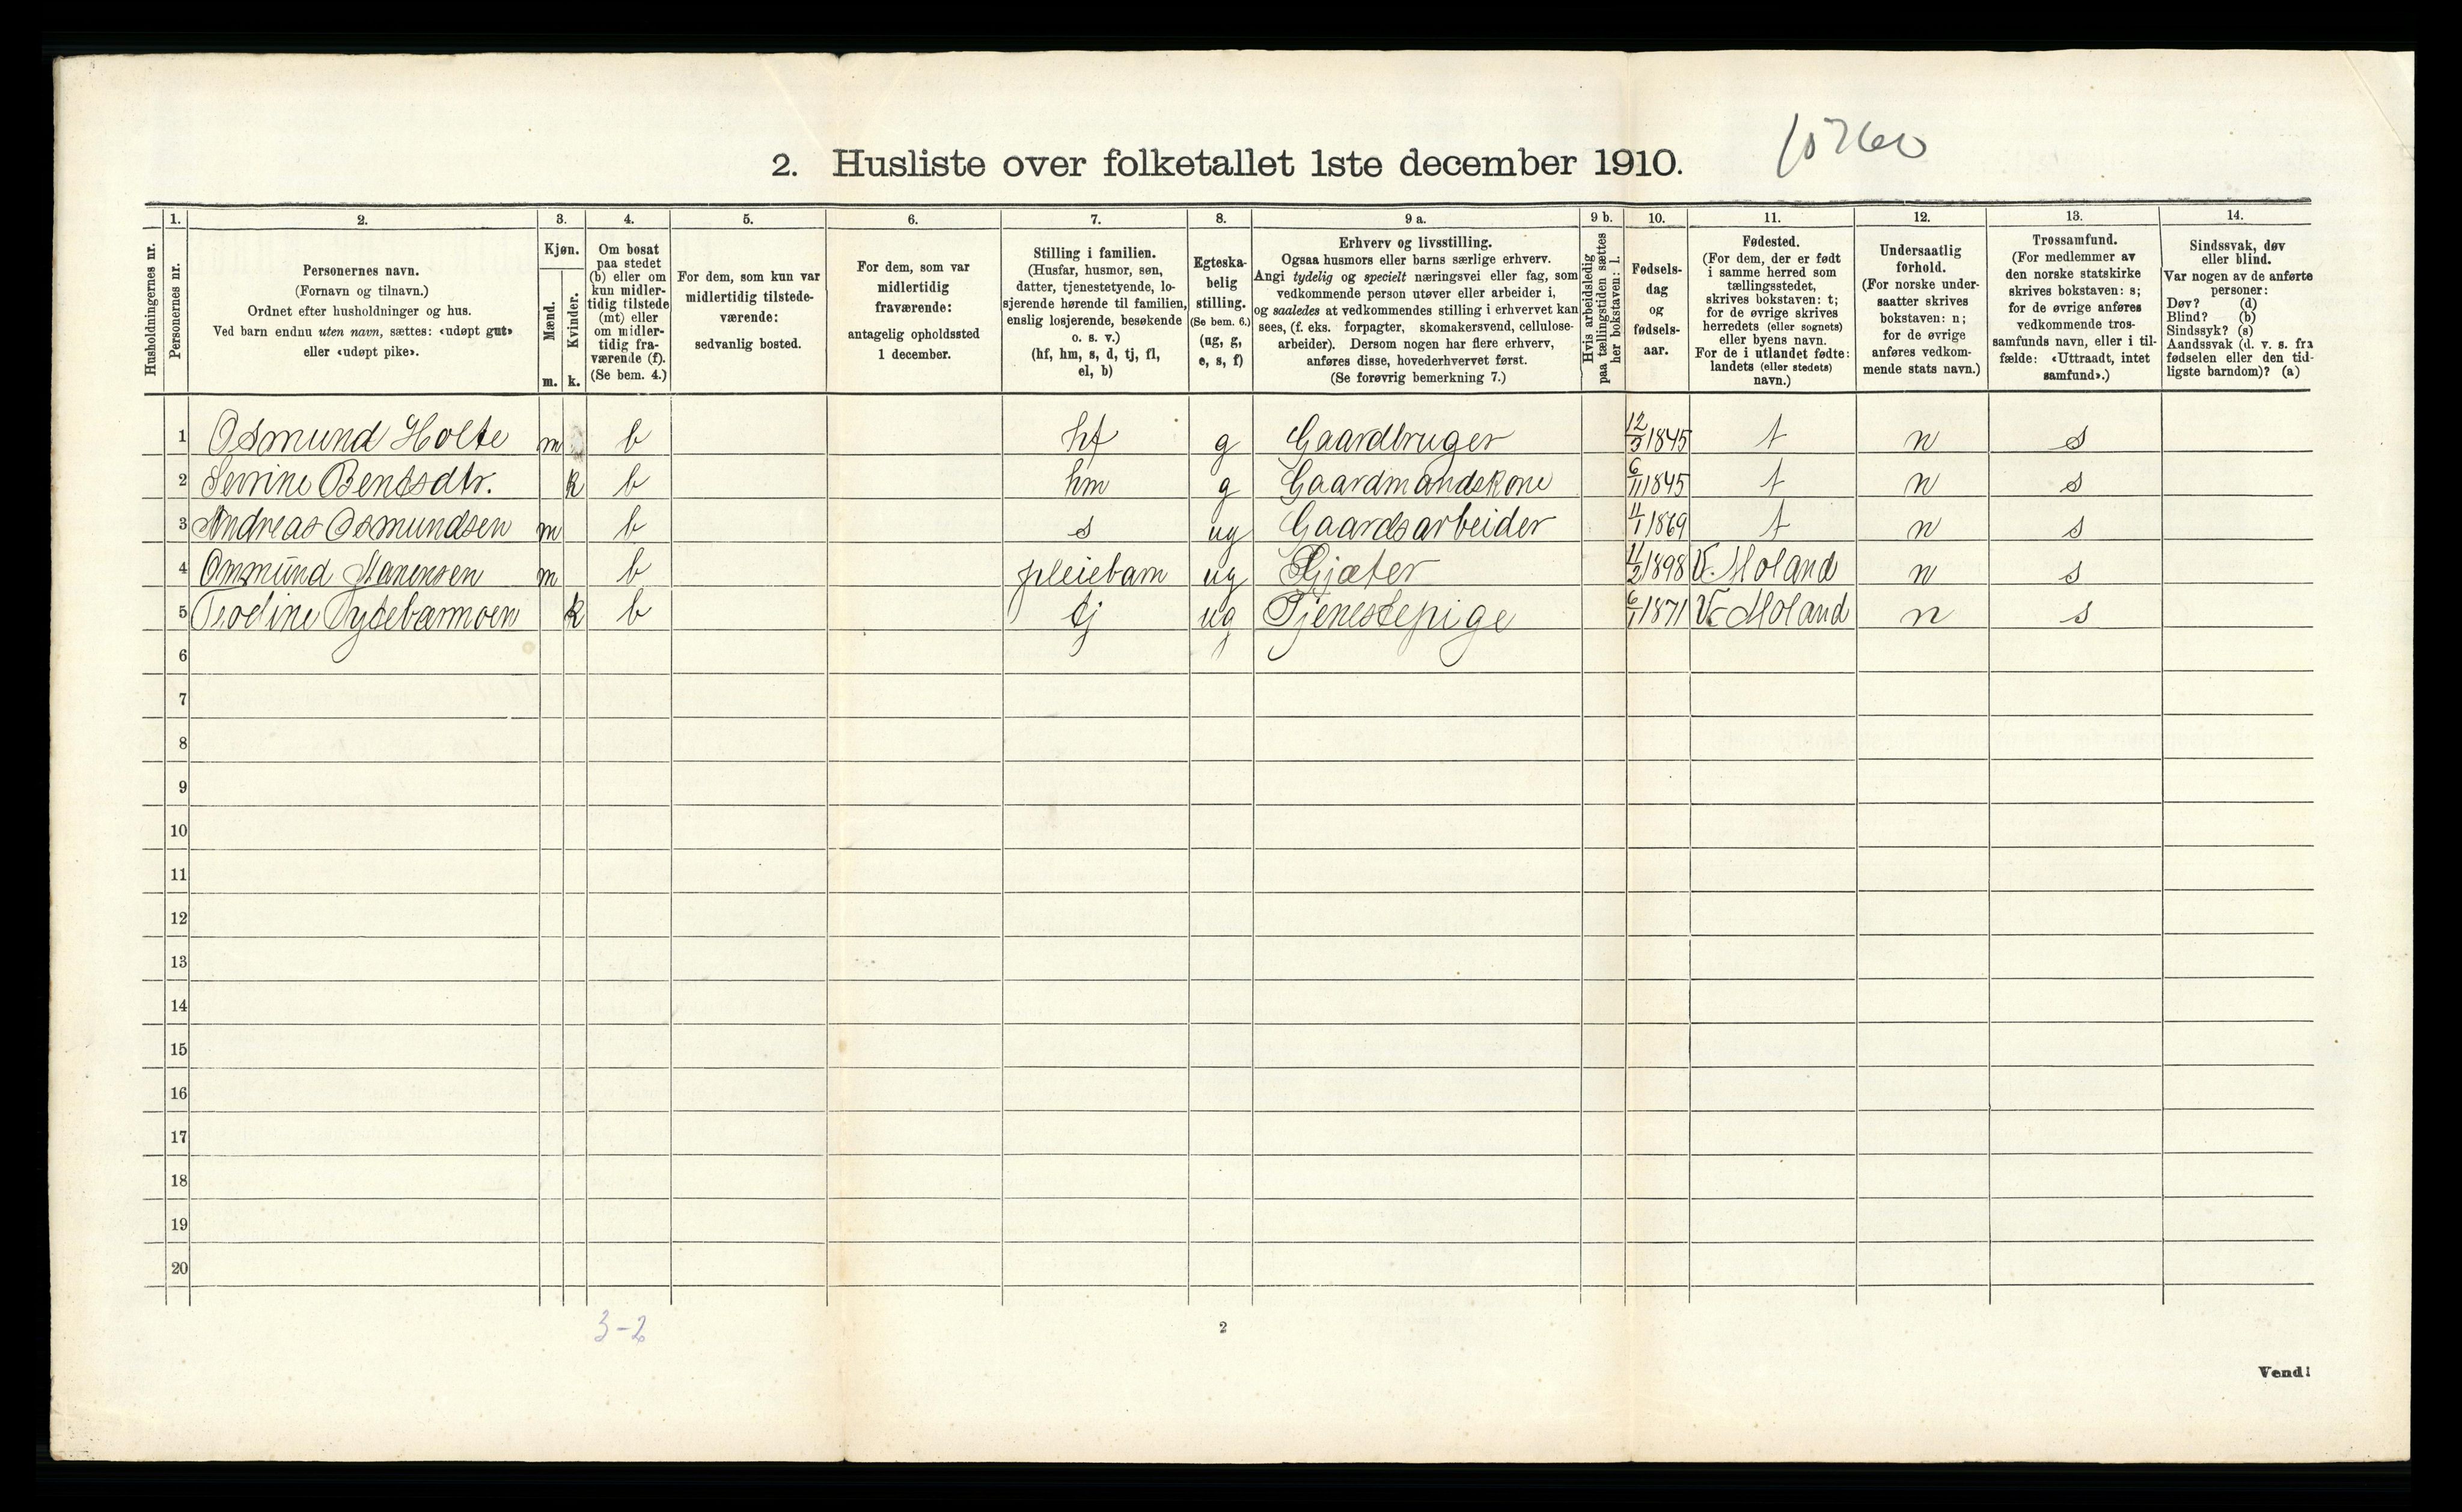 2. Husliste over folketallet 1ste december 1910.
1. 2. 3. 4. 5. 6. 7. 8. 9 a. 9 b. 10. 11. 12. 13. 14.
Husholdningernes nr.
Personernes nr.
Personernes navn.
(Fornavn og tilnavn.)
Ordnet efter husholdninger og hus.
Ved barn endnu uten navn, sættes: «udøpt gut»
eller «udøpt pike».
Kjøn.
Mænd.
Kvinder.
m. k.
Om bosat
paa stedet
(b) eller om
kun midler-
tidig tilstede
(mt) eller
om midler-
tidig fra-
værende (f).
(Se bem. 4.)
For dem, som kun var
midlertidig tilstede-
værende:
sedvanlig bosted.
For dem, som var
midlertidig
fraværende:
antagelig opholdssted
1 december.
Stilling i familien.
(Husfar, husmor, søn,
datter, tjenestetyende, lo-
sjerende hørende til familien,
enslig losjerende, besøkende
o. s. v.)
(hf, hm, s, d, tj, fl,
el, b)
Egteska-
belig
stilling.
(Se bem. 6.)
(ug, g,
e, s, f)
Erhverv og livsstilling.
Ogsaa husmors eller barns særlige erhverv.
Angi tydelig og specielt næringsvei eller fag, som
vedkommende person utøver eller arbeider i,
og saaledes at vedkommendes stilling i erhvervet kan
sees, (f. eks. forpagter, skomakersvend, cellulose-
arbeider). Dersom nogen har flere erhverv,
anføres disse, hovederhvervet først.
(Se forøvrig bemerkning 7.)
Hvis arbeidsledig
paa tællingstiden sættes
her bokstaven: l.
Fødsels-
dag
og
fødsels-
aar.
Fødested.
(For dem, der er født
i samme herred som
tællingsstedet,
skrives bokstaven: t;
for de øvrige skrives
herredets (eller sognets)
eller byens navn.
For de i utlandet fødte:
landets (eller stedets)
navn.)
Undersaatlig
forhold.
(For norske under-
saatter skrives
bokstaven: n;
for de øvrige
anføres vedkom-
mende stats navn.)
Trossamfund.
(For medlemmer av
den norske statskirke
skrives bokstaven: s;
for de øvrige anføres
vedkommende tros-
samfunds navn, eller i til-
fælde: «Uttraadt, intet
samfund».)
Sindssvak, døv
eller blind.
Var nogen av de anførte
personer:
Døv? (d)
Blind? (b)
Sindssyk? (s)
Aandssvak (d. v. s. fra
fødselen eller den tid-
ligste barndom)? (a)
1 Osmund Holte m b hf g Gaardbruger 12/3 1845 t n s
2 Serine Bentsdtr. k b hm g Gaardmandskone 6/11 1845 t n s
3 Andreas Osmundsen m b s ug Gaardsarbeider 4/1 1869 t n s
4 Ommund m b pleiebarn ug Gjæter 11/2 1898 V. Moland n s
5 k b tj ug Tjenestepige 6/1 1871 V. Moland n s
6
7
8
9
10
11
12
13
14
15
16
17
18
19
20
3-2
2
Vend!